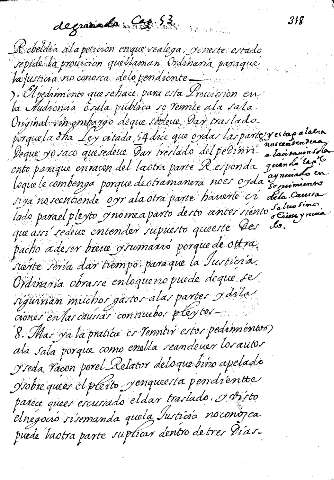 de granada. Cap. 53. 318
Rebeldia a la peticion en que se alega, y en este estado
se pide la provicion que llaman Ordinaria para que
la Justicia no conosca de lo pendiente
7. El pedimento que se hace para esta Provicion en
la Audiencia o sala publica se remite a la sala
Original sin embargo de que se deve dar traslado
porque la dha Ley citada, 54 dice que oydas las partes
De que yo saco que se deve dar traslado del pedimi-
ento para que en racon del la otra parte Responda
lo que le combenga porque de otra manera no es oyda
si ya no se entiende oyr a la otra parte haverse ci-
tado para el pleyto y no mea parto desto antes siento
que assi se deve entender supuesto que este Des-
pacho a de ser breve y sumario porque de otra
suerte seria dar tiempo para que la Justicia
Ordinaria obrasse en lo que no puede de que se
siguirian muchos gastos a las partes y dila-
ciones en las causas con nuebos pleytos.
8. Mas ya la pratica es remitir estos pedimientos
a la sala porque como en ella se an de ver los autos
y se da racon por el Relator de lo que hiso apelado
y sobre que es el pleito, y en que esta pendiente
parece que es escusado el dar traslado, y visto
el negocio si se manda que la Justicia no conosca
puede la otra parte suplicar dentro de tres Dias.